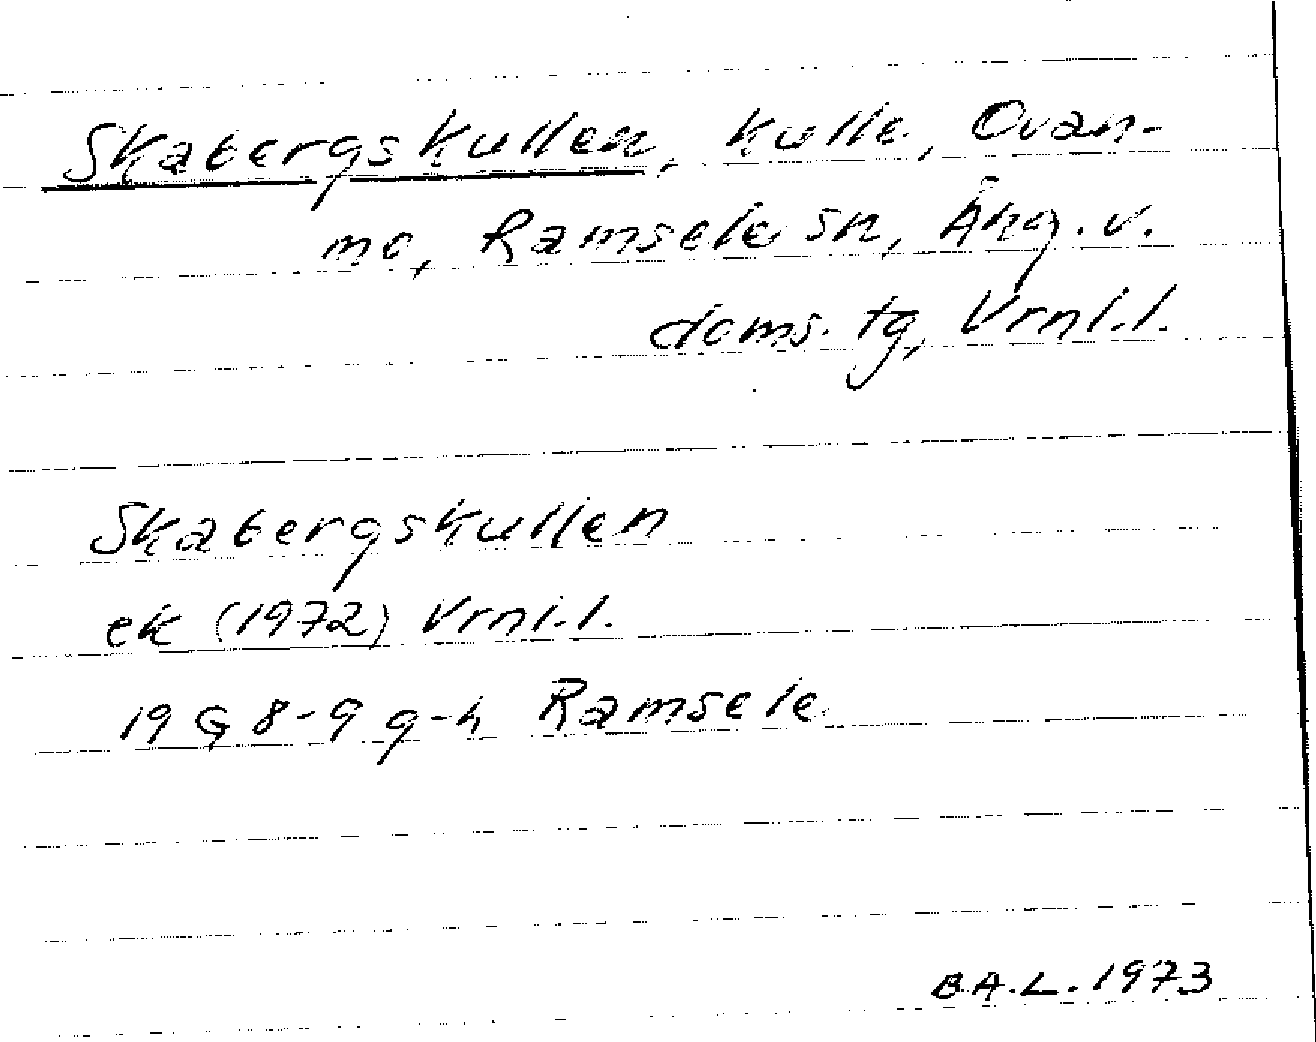 Skabergskullen, kulle, Ovan-
mo, Ramsele sn, Ång. v.
doms. tg, Vrnl.l.
Skabergskullen
ek (1972) Vrnl.l.
19 G 8-9 g-h Ramsele
B.A.L. 1973